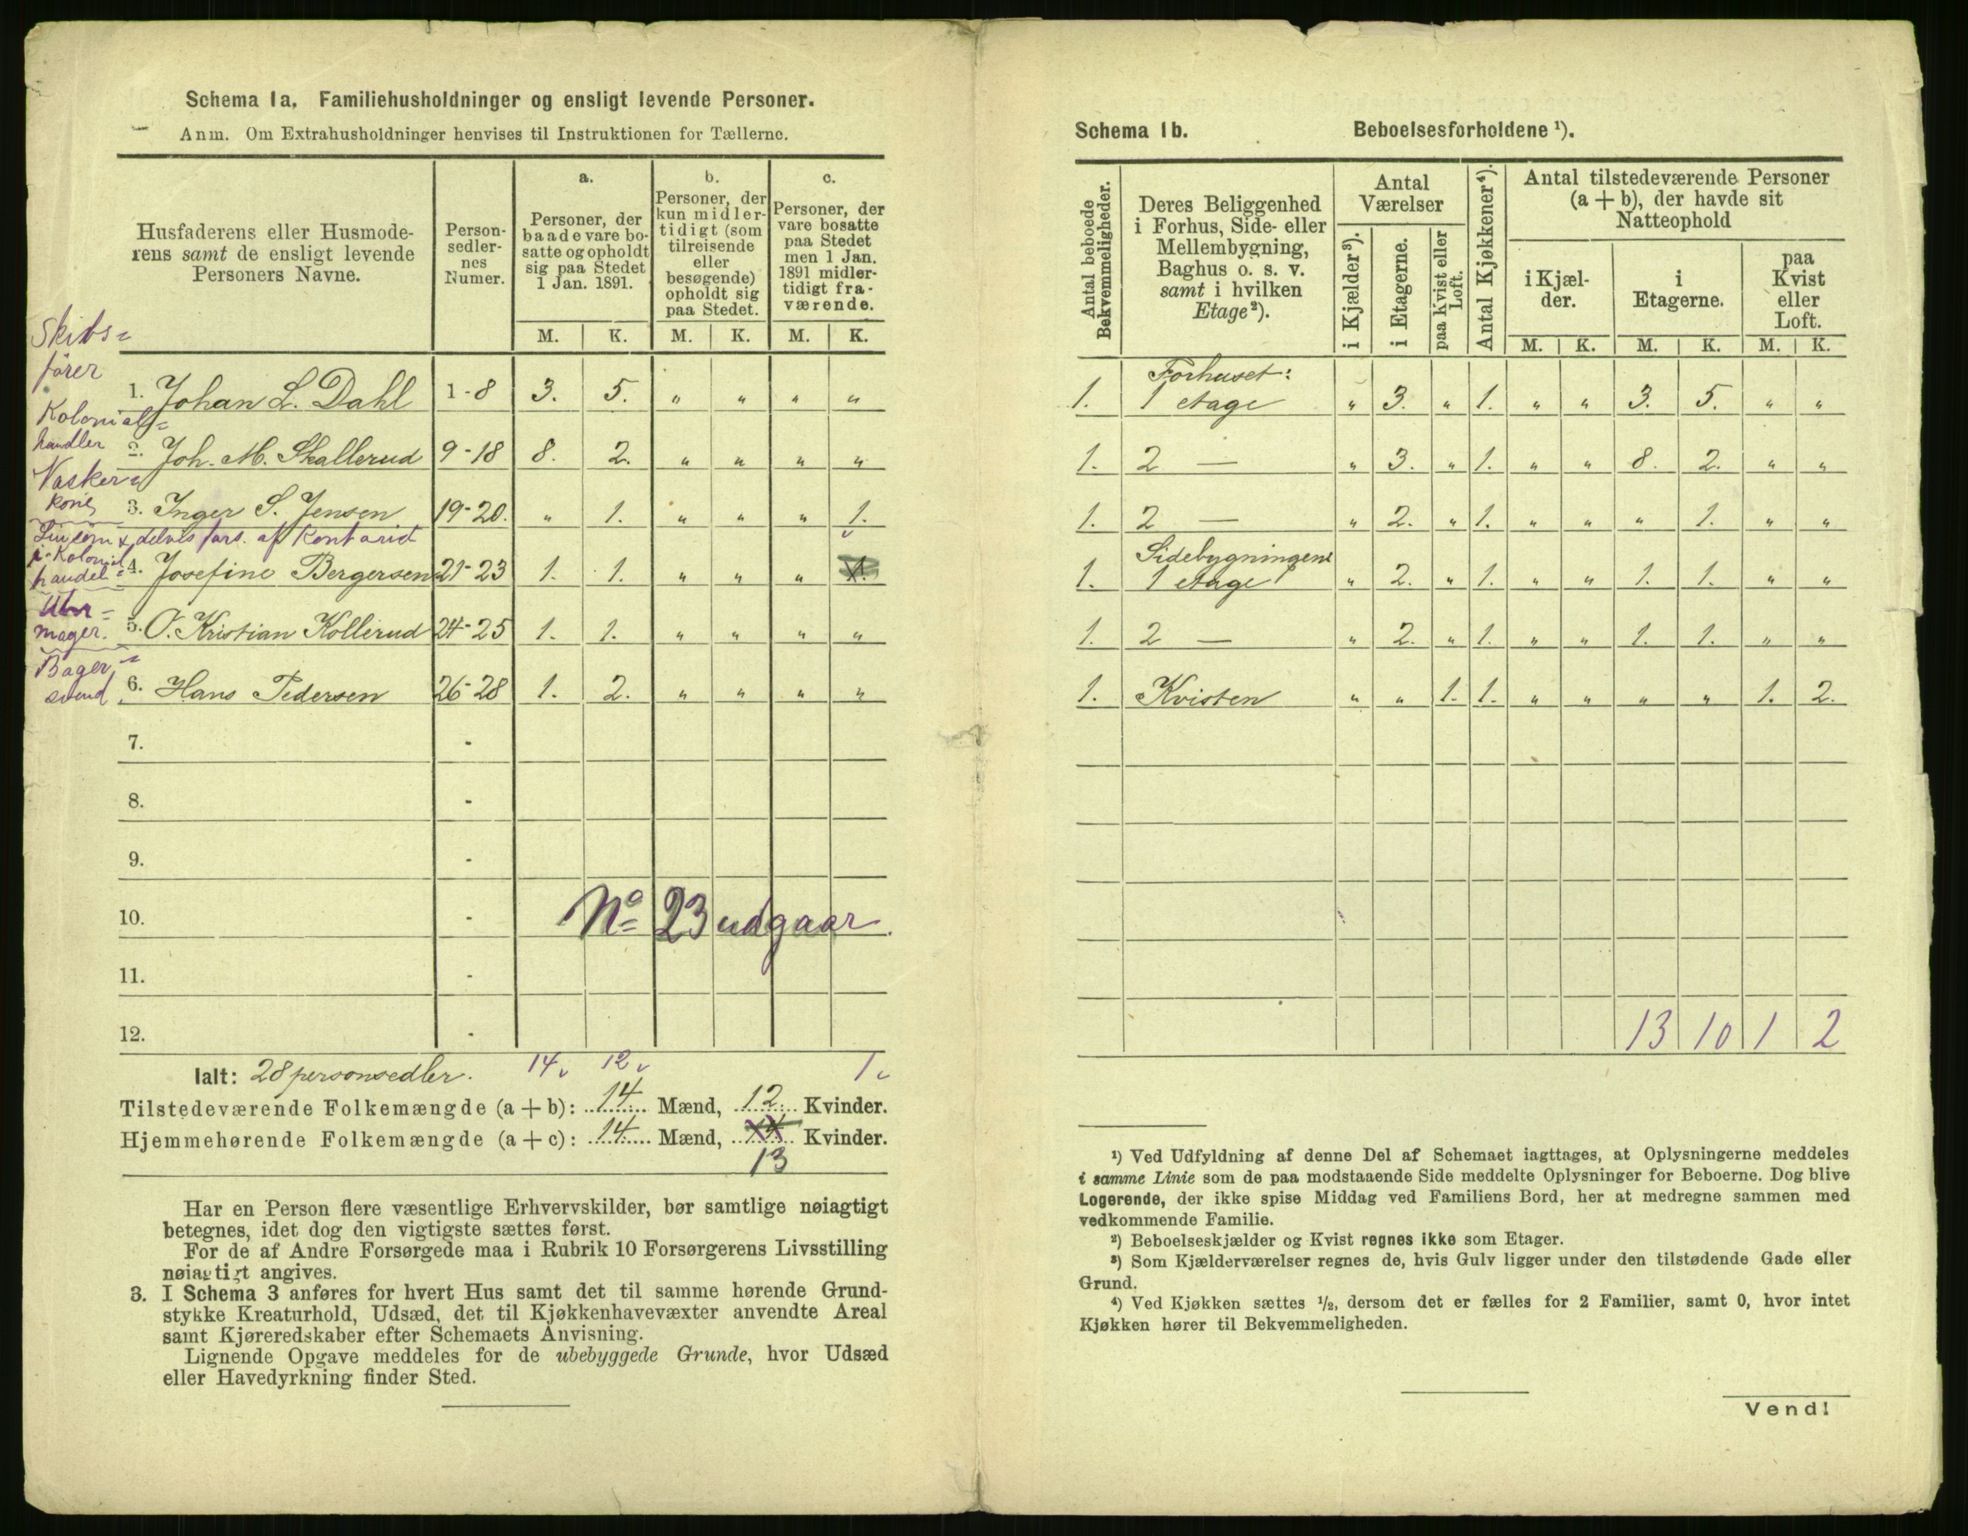 Schema 1a. Familiehusholdninger og ensligt levende Personer.
Anm. Om Extrahusholdninger henvises til Instruktionen for Tællerne.
Husfaderens eller Husmoderens samt de ensligt levende Personers Navne.
Person-sedler-nes Numer.
a. Personer, der baade vare bosatte og opholdt sig paa Stedet 1 Jan. 1891.
b. Personer, der kun midlertidigt (som tilreisende eller besøgende) opholdt sig paa Stedet.
c. Personer, der vare bosatte paa Stedet men 1 Jan. 1891 midlertidigt fraværende.
M. K. M. K. M. K.
Skibs=
fører
1. Johan L. Dahl 1-8 3. 5. " " " "
Kolonial=
handler
2. Joh. M. Skallerud 9-18 8. 2. " " " "
Vasker=
kone
3. Inger S. Jensen 19-20. " 1. " " " 1.
delvis fors. af Kontorist
i Kolonial
handel=
4. Josefine Bergersen 21-23 1. 1. " " " 1.
Uhr=
mager.
5. O. Kristian Kollerud 24-25 1. 1. " " " "
Bager=
svend.
6. Hans Pedersen 26-28 1. 2. " " " "
7. -
8. -
9. -
10. -
No 23 udgaar.
11. -
12. -
Ialt: 28 personsedler. 14 12 1
Tilstedeværende Folkemængde (a + b): 14 Mænd, 12 Kvinder.
Hjemmehørende Folkemængde (a + c): 14 Mænd, 14 Kvinder.
13
Har en Person flere væsentlige Erhvervskilder, bør samtlige nøiagtigt
betegnes, idet dog den vigtigste sættes først.
For de af Andre Forsørgede maa i Rubrik 10 Forsørgerens Livsstilling
nøiagtigt angives.
3. I Schema 3 anføres for hvert Hus samt det til samme hørende Grund-
stykke Kreaturhold, Udsæd, det til Kjøkkenhavevæxter anvendte Areal
samt Kjøreredskaber efter Schemaets Anvisning.
Lignende Opgave meddeles for de ubebyggede Grunde, hvor Udsæd
eller Havedyrkning finder Sted.
Schema 1b. Beboelsesforholdene ¹).
Antal beboede Bekvemmeligheder.
Deres Beliggenhed i Forhus, Side- eller Mellembygning, Baghus o. s. v. samt i hvilken Etage²).
Antal Værelser
i Kjælder³).
i Etagerne.
paa Kvist eller Loft.
Antal Kjøkkener⁴).
Antal tilstedeværende Personer (a + b), der havde sit Natteophold
i Kjælder.
i Etagerne.
paa Kvist eller Loft.
M. K. M. K. M. K.
Forhuset:
1. 1 etage " 3. " 1. " " 3. 5. " "
1. 2 — " 3. " 1. " " 8. 2. " "
1. 2 — " 2. " 1. " " " 1. " "
Sidebygningen:
1. 1 etage " 2. " 1. " " 1. 1. " "
1. 2 — " 2. " 1. " " 1. 1. " "
1. Kvisten " " 1. 1. " " " " 1. 2.
13 10 1 2
¹) Ved Udfyldning af denne Del af Schemaet iagttages, at Oplysningerne meddeles
i samme Linie som de paa modstaaende Side meddelte Oplysninger for Beboerne. Dog blive
Logerende, der ikke spise Middag ved Familiens Bord, her at medregne sammen med
vedkommende Familie.
²) Beboelseskjælder og Kvist regnes ikke som Etager.
³) Som Kjælderværelser regnes de, hvis Gulv ligger under den tilstødende Gade eller
Grund.
⁴) Ved Kjøkken sættes ½, dersom det er fælles for 2 Familier, samt 0, hvor intet
Kjøkken hører til Bekvemmeligheden.
Vend!